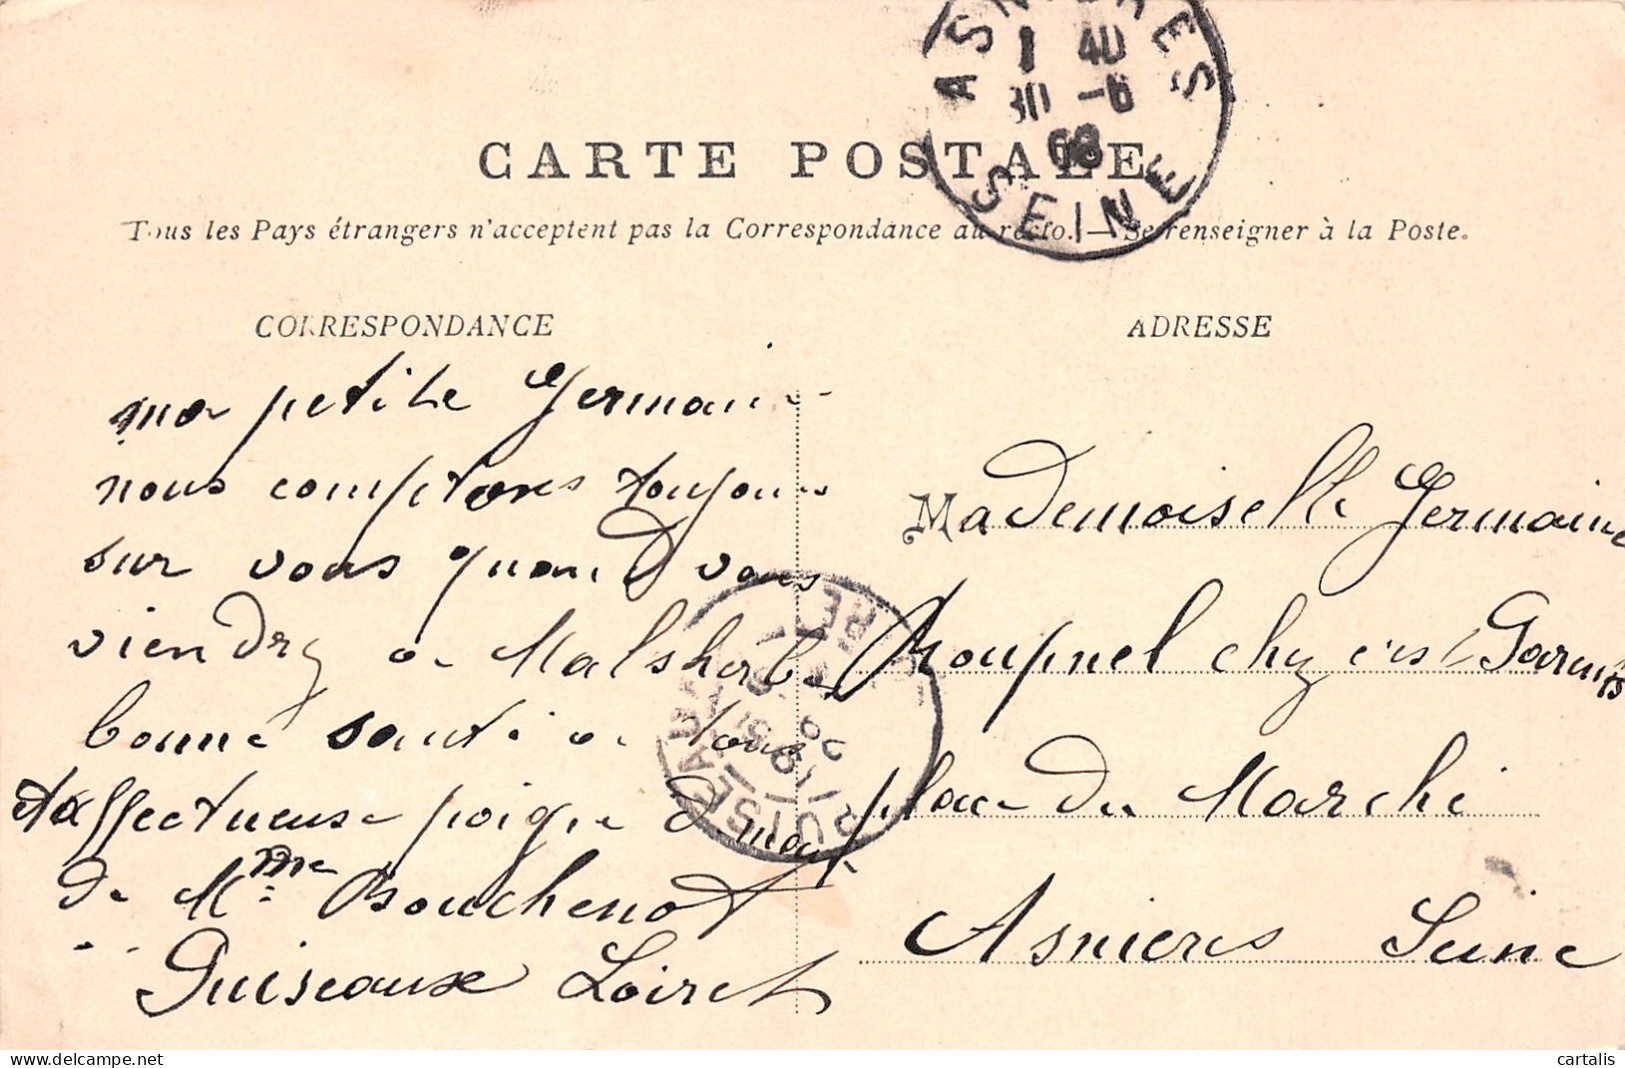 ASNIERES
1 40
30 -6
08
SEINE
CARTE POSTALE
Tous les Pays étrangers n'acceptent pas la Correspondance au recto. — Se renseigner à la Poste.
CORRESPONDANCE
ma petite Germaine
nous comptons toujours
sur vous quand vous
viendrez a Malsherbe
bonne santé a tous
affectueuse poigne de main
de Mme Bouchenot
Puiseaux Loiret
ADRESSE
Mademoiselle Germaine
Roupnel chez
place du Marché
Asnieres Seine
PUISEAUX
LOIRET
cartalis